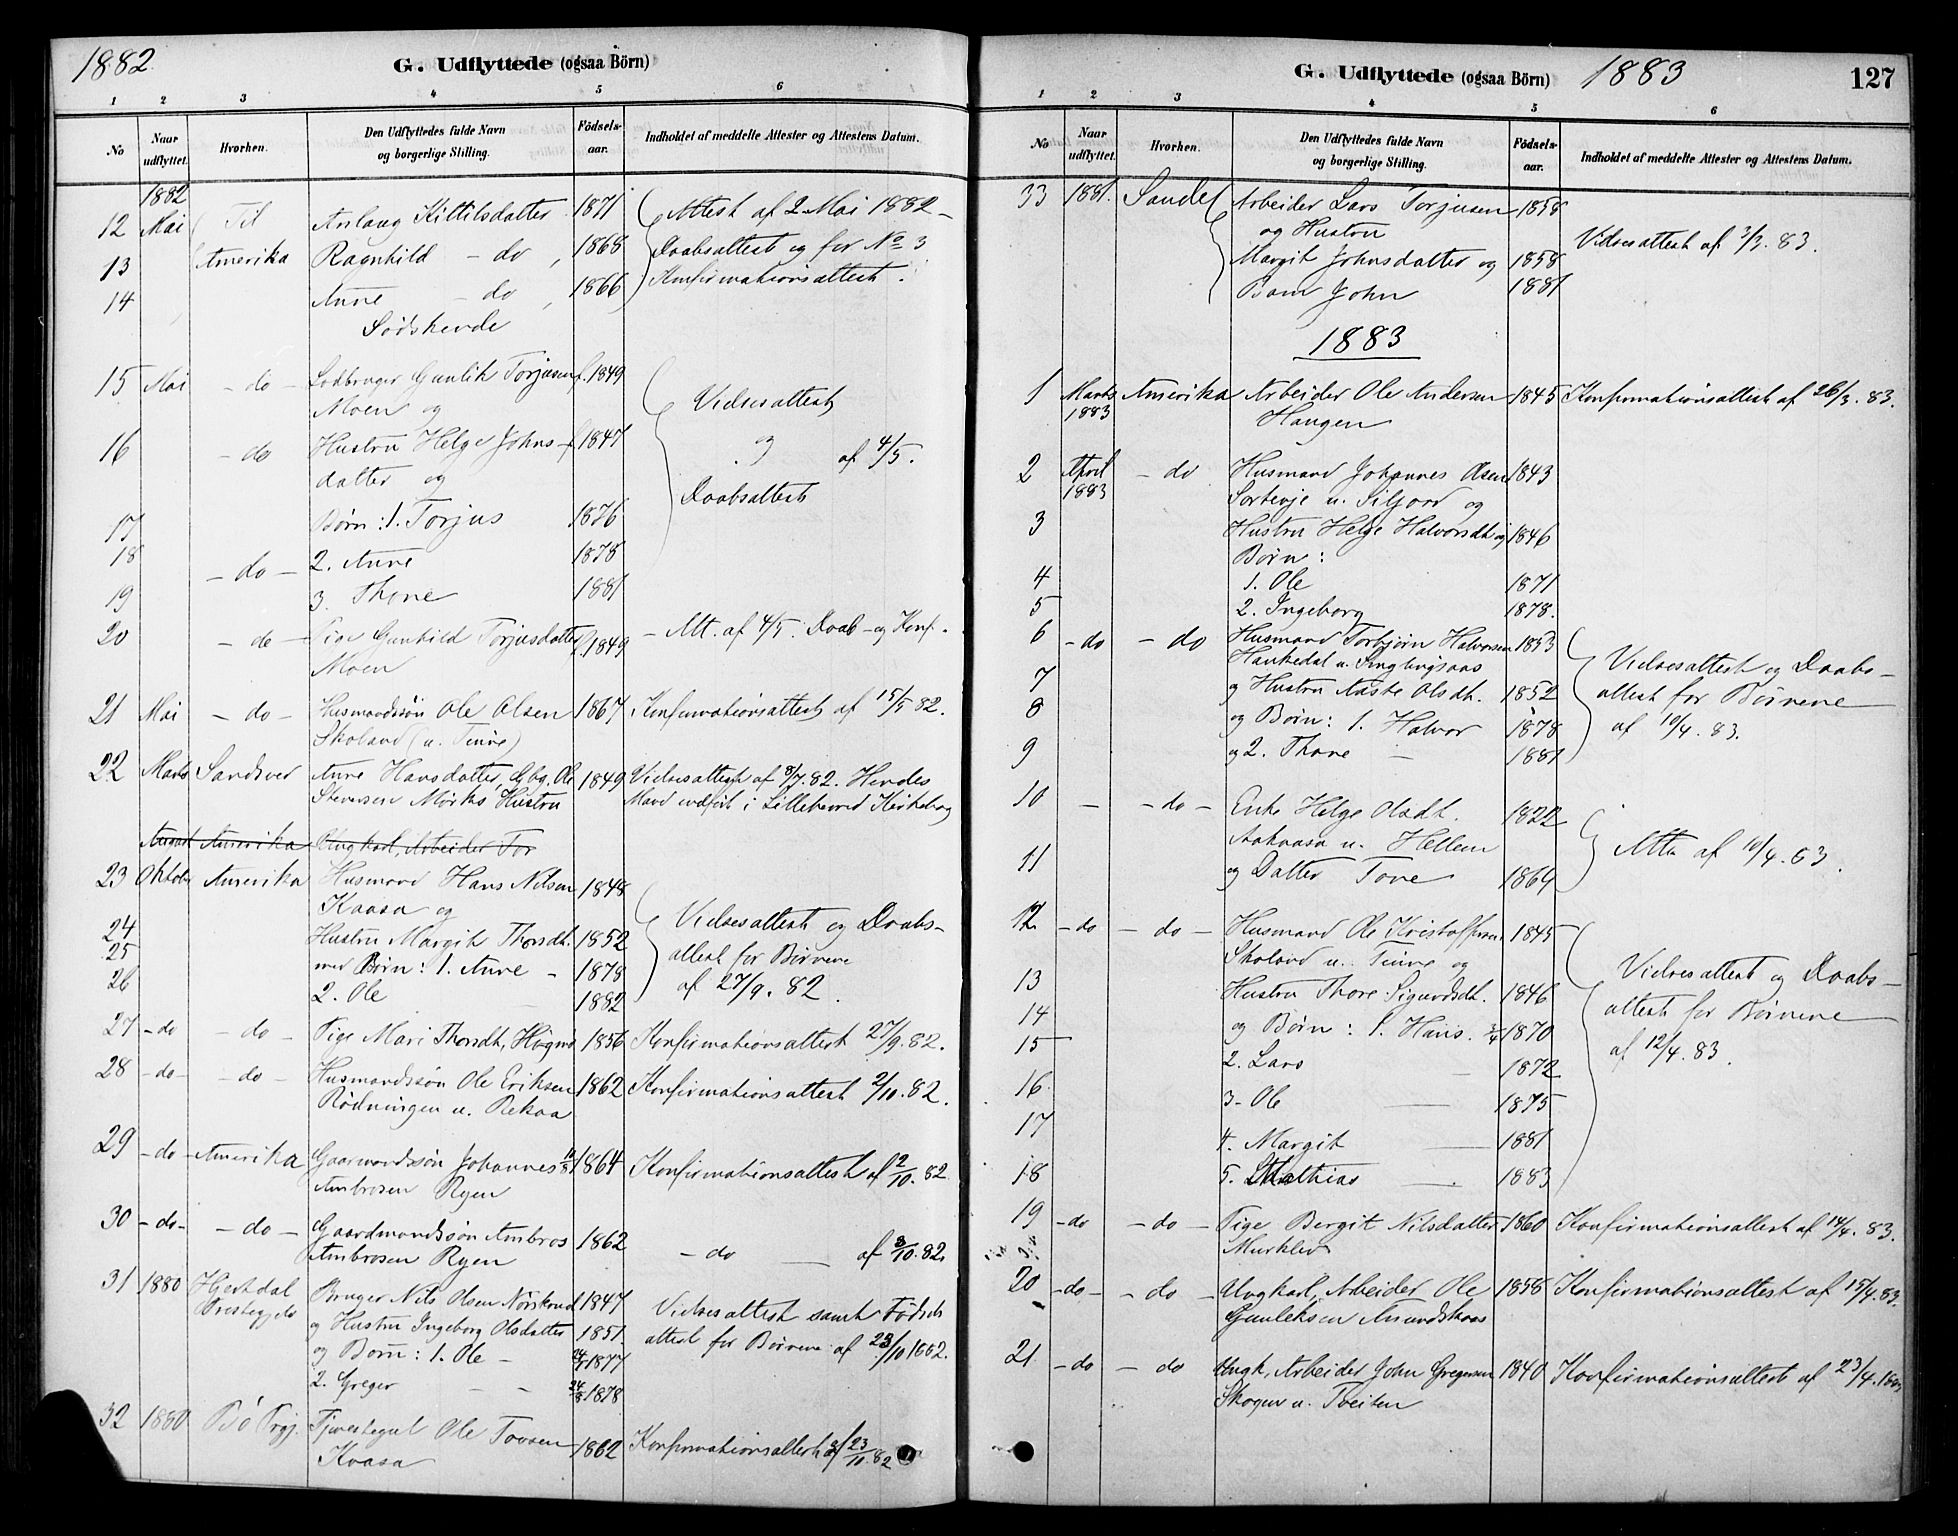 1882
G. Udflyttede (ogsaa Börn)
1 2 3 4 5 6
No
Naar udflyttet.
Hvorhen.
Den Udflyttedes fulde Navn og borgerlige Stilling.
Födsels-aar.
Indholdet af meddelte Attester og Attestens Datum.
1882
12 Mai Til Aslaug Kittilsdatter 1871 Attest af 2 Mai 1882 -
13 Amerika Ragnhild - do 1868 Daabsattest og for No 3
14 Anne - do 1866 Konfirmationsattest.
Södskende
15 Mai - do - Gunlik Torjusen f. 1849 Vielsesattest
Moen og
16 - do Hustru Helge Johns- f. 1847 og af 4/5.
datter og
Daabsattest
17 Börn: 1. Torjus 1876
18 - do - 2. Anne 1878
19 3. Thone 1881
20 - do - Pige Gunhild Torjusdatter f. 1849 - Att. af 4/5. Daab - og Konf.
Moen
21 Mai - do - Husmandssön Ole Olsen 1867 Konfirmationsattest af 15/5 82.
Skoland (u. Tinne)
22 Marts Sandsver Anne Hansdatter, Ole 1849 Vielsesattest af 8/7. 82. Hendes
Stensen Mörks Hustru Mand indfört i Lilleherred Kirkebog
August Amerika Ungkarl, Arbeider Tor
23 Oktober Amerika Husmand Hans Nilsen 1848
Kaasa og
24 Hustru Margit Thorsdt. 1852 Vielsesattest og Daabs-
25 med Börn: 1. Anne - 1878 attest for Börnene
26 2. Ole 1882 af 27/9. 82.
27 - do - do - Pige Mari Thorsdt, 1856 Konfirmationsattest 27/9. 82.
28 - do - - do - Husmandssön Ole Eriksen 1862 Konfirmationsattest 2/10. 82.
Rödningen u. Rekaa
29 - do - Amerika Gaarmandssön Johannes 1864 Konfirmationsattest af 2/10. 82
Ambrosen Ryen
30 - do - - do - Gaardmandssön Ambros 1862 - do — af 3/10. 82.
Ambrosen Ryen
31 1880 Hjertdal Bruger Nils Olsen 1847 Vielsesattest samt Födsels
Prestegjeld og Hustru Ingeborg Olsdatter 1851. attest for Börnene af 23/10 1882.
og Börn: 1. Ole - 1877
2. Greger - - 1878
32 1880 Bö Prgj. Tjenestegut Ole Tovsen 1862 Konfirmationsattest af 23/10. 82
Kaasa
G. Udflyttede (ogsaa Börn)
1883
127
1 2 3 4 5 6
No
Naar udflyttet.
Hvorhen.
Den Udflyttedes fulde Navn og borgerlige Stilling.
Födsels-aar.
Indholdet af meddelte Attester og Attestens Datum.
33 1881. Sande Arbeider Lars Torjusen 1858
og Hustru Vielsesattest af 3/3. 83.
Margit Johnsdatter og 1858
Barn John 1881
1883
1 Marts 1883 Amerika Arbeider Ole Andersen 1845 Konfirmationsattest af 26/3. 83.
Haugen
2 April 1883 - do Husmand Johannes Olsen 1843
u. Siljord og
3 Hustru Helge Halvorsdt og 1846
Börn:
4 1. Ole 1871
5 2. Ingeborg 1878.
6 - do - do Husmand Torbjörn Halvorsen 1853
Haukedal u. Vielsesattest og Daabs-
7 og Hustru Aaste Olsdt. 1852 attest for Börnene
8 og Börn: 1. Halvor 1878 af 10/4. 83.
9 og 2. Thone - 1881
10 - - do - Enke Helge Olsdt. 1822
Aakaasa u. Hellem Atta af 10/4. 83.
11 og Datter Tone 1864
12 - do - do - Husmand Ole Kristoffersen 1845
Skoland u. Tinne og Vielsesattest og Daabs-
13 Hustru Thore Sigurdsdt. 1846 attest for Börnene
14 og Börn: 1. Hans. 1870
15 2. Lars - 1872 af 12/4. 83.
16 3. Ole — 1875
17 4. Margit — 1881
18 5. Mathias — 1883
19 - do - do - Pige Bergit Nilsdatter 1860 Konfirmationsattest af 14/4. 83.
20 - do - - do - Ungkarl, Arbeider Ole 1858 Konfirmationsattest af 15/4. 83.
Gunleksen
21 - do - do Ungk. Arbeider John Gregersen 1840 Konfirmationsattest af 23/4. 1883
Skogen u. Tveiten